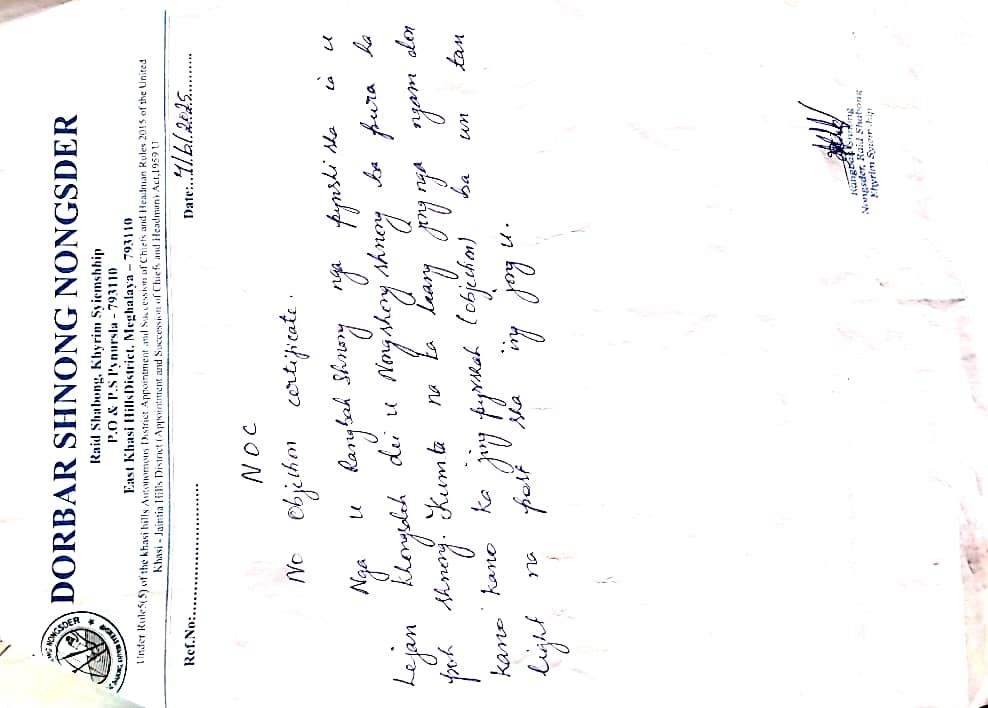 DORBAR SHNONG NONGSDER
Raid Shabong, Khyrim Syiemshhip
P.O & P.S Pynursla - 793110
East Khasi HillsDistrict, Meghalaya – 793110
Under Rule5(5) of the khasi hills Autonomous District Appointment and Succession of Chiefs and Headman Rules 2015 of the United
Khasi - Jaintia Hills District (Appointment and Succession of Chiefs and Headman) Act,1959 U
Ref.No:............................ Date:...4/6/2025...........
NOC
No Objection certificate.
Nga u Rangbah Shnong nga pynshisha ia u
Lejan Khongsdeh dei u Nongshong shnong ba pura ka
poh shnong. Kumta na ka liang jong nga ngam don
kano kano ka jing pyrshah (objection) ba un tan
light na post sha ïng jong u.
Rangbah Shnong
Nongsder, Raid Shabong
Khyrim Syiemship